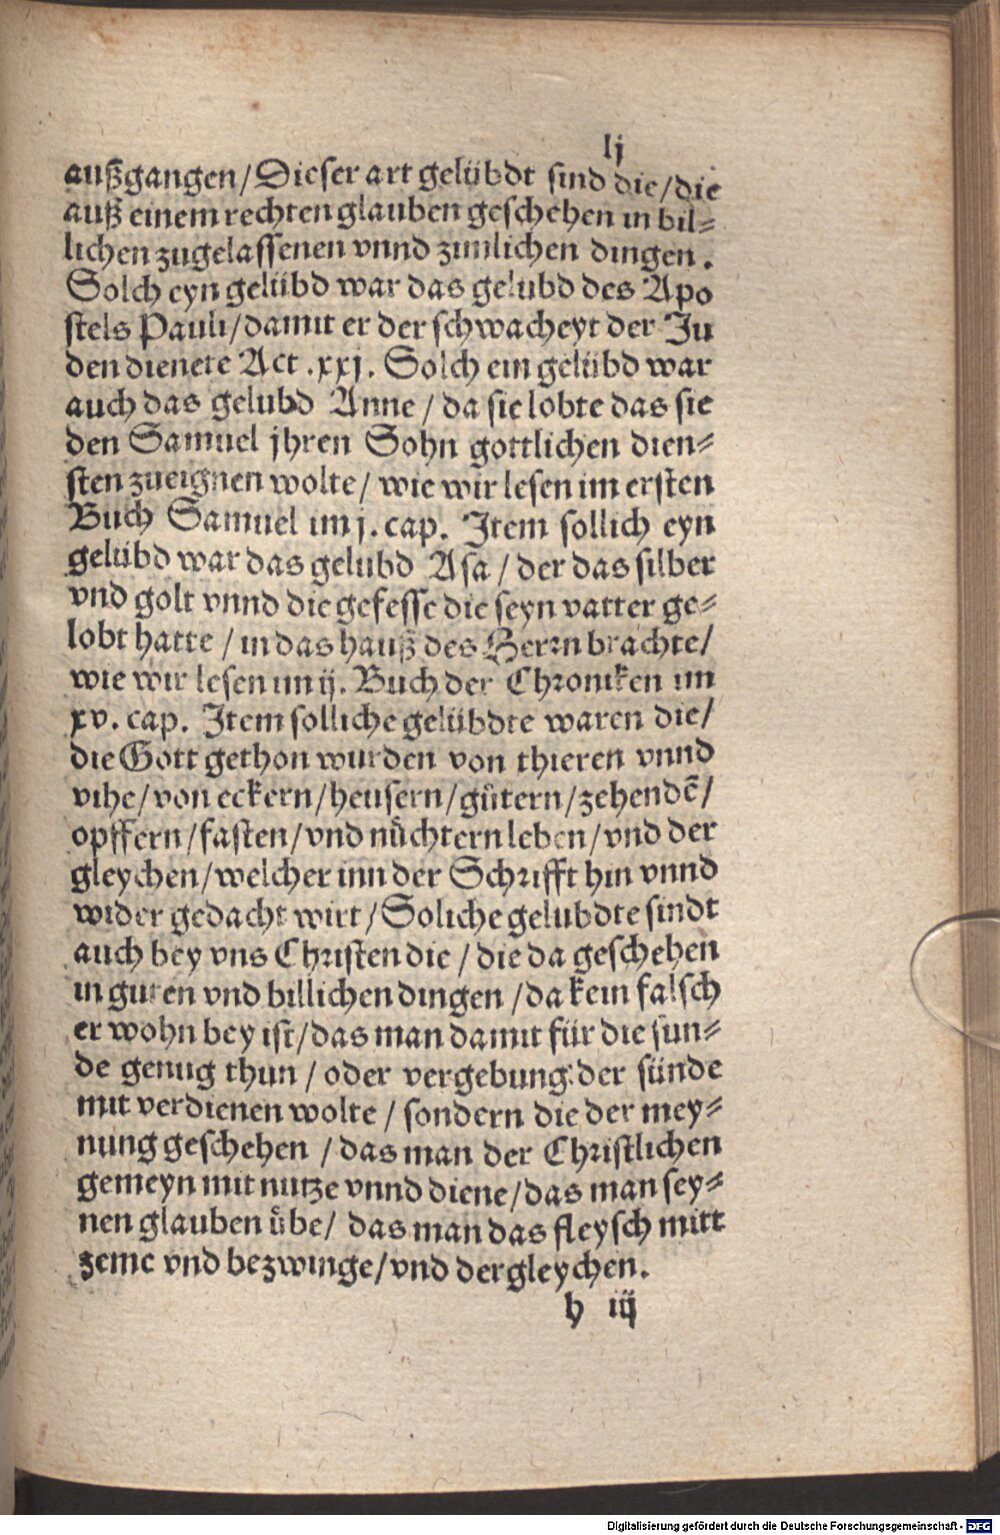 lj
außgangen/Dieser art gelübdt sind die/die
auß einem rechten glauben geschehen in bil⸗
lichen zugelassenen vnnd zimlichen dingen.
Solch eyn gelübd war das gelubd des Apo
stels Pauli/damit er der schwacheyt der Ju
den dienete Act .xxj. Solch ein gelübd war
auch das gelubd Anne / da sie lobte das sie
den Samuel jhren Sohn gottlichen dien⸗
sten zueignen wolte/ wie wir lesen im ersten
Buch Samuel im j. cap. Item sollich eyn
gelübd war das gelubd Asa / der das silber
vnd golt vnnd die gefesse die seyn vatter ge⸗
lobt hatte / in das hauß des Herrn brachte/
wie wir lesen im ij. Buch der Chroniken im
xv. cap. Item solliche gelübdte waren die/
die Gott gethon wurden von thieren vnnd
vihe/von eckern/heusern/gůtern/zehendē/
opffern/fasten/vnd nůchtern leben/vnd der
gleychen/welcher inn der Schrifft hin vnnd
wider gedacht wirt/Soliche gelubdte sindt
auch bey vns Christen die / die da geschehen
in guten vnd billichen dingen /da kein falsch
er wohn bey ist/das man damit für die sun⸗
de genug thun / oder vergebung der sünde
mit verdienen wolte / sondern die der mey⸗
nung geschehen / das man der Christlichen
gemeyn mit nutze vnnd diene/das man sey⸗
nen glauben ůbe/ das man das fleysch mitt
zeme vnd bezwinge/vnd dergleychen.
h iij
Digitalisierung gefördert durch die Deutsche Forschungsgemeinschaft - DFG